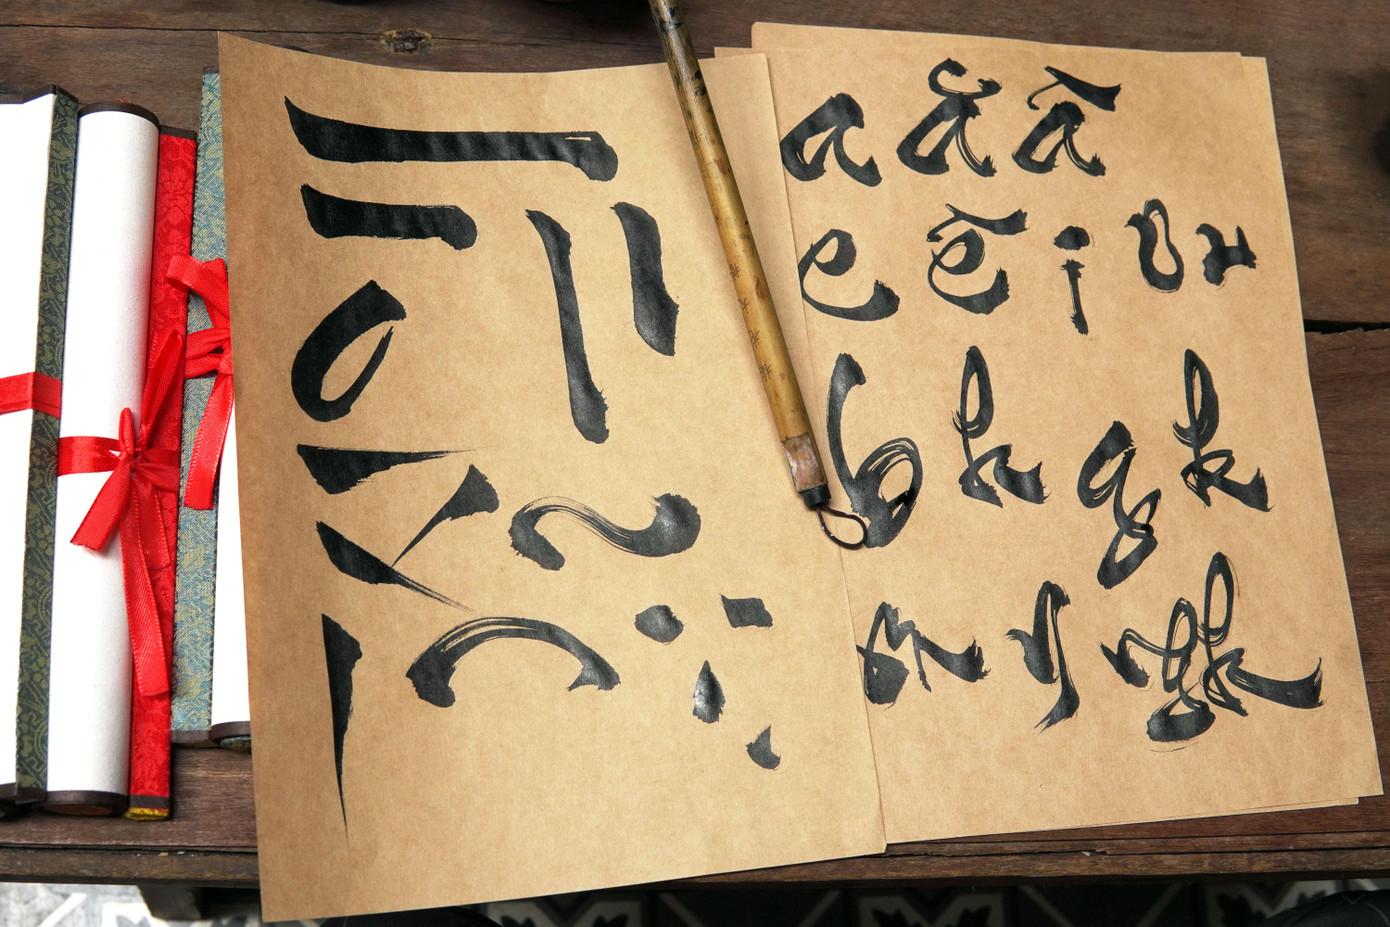 a ă â
e ê i
b h g k
y ngh